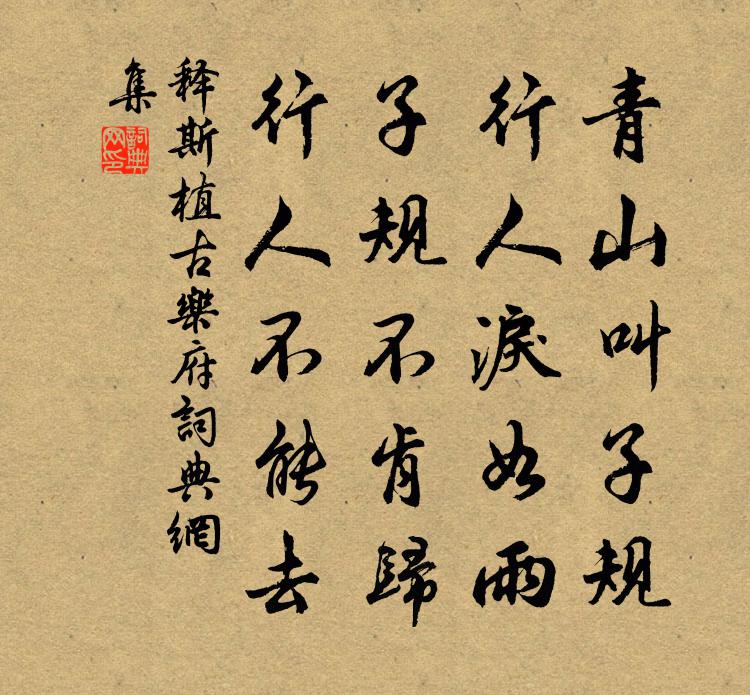 青山叫子規
行人淚如雨
子規不肯歸
行人不能去
释斯植古樂府詞典網
集
詞典网印